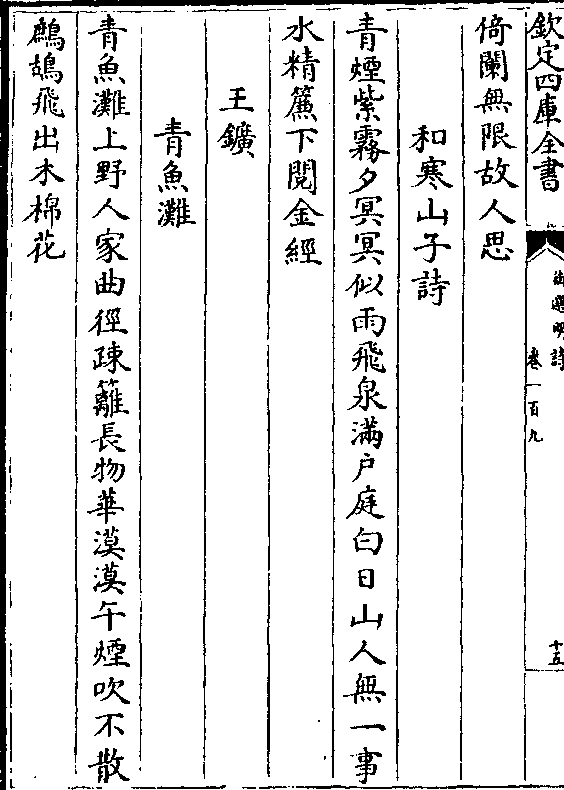 欽定四庫全書
御選明詩
卷一百九
十五
倚闌無限故人思
和寒山子詩
青煙紫霧夕冥冥似雨飛泉滿户庭白日山人無一事
水精簾下閱金經
王鑛
青魚灘
青魚灘上野人家曲徑疎籬長物華漠漠午煙吹不散
鷓鴣飛出木棉花